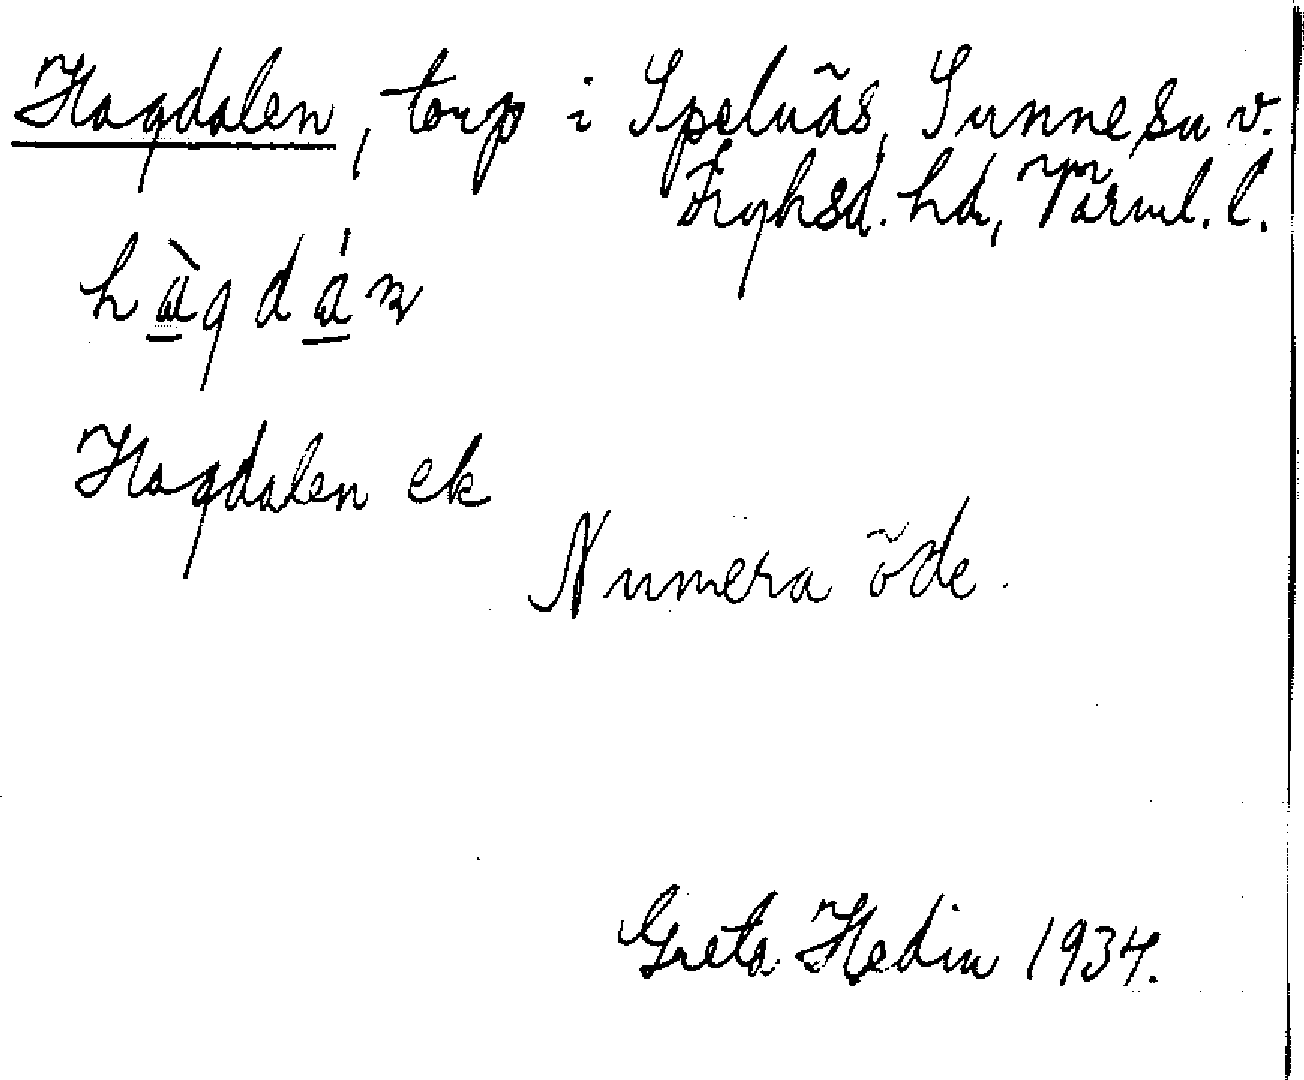 Hagdalen, torp i Spelnäs, Sunne sn v.
Fryksd. hd, Värml. l.
hàgdán
Hagdalen ek
Numera öde.
Greta Hedin 1934.